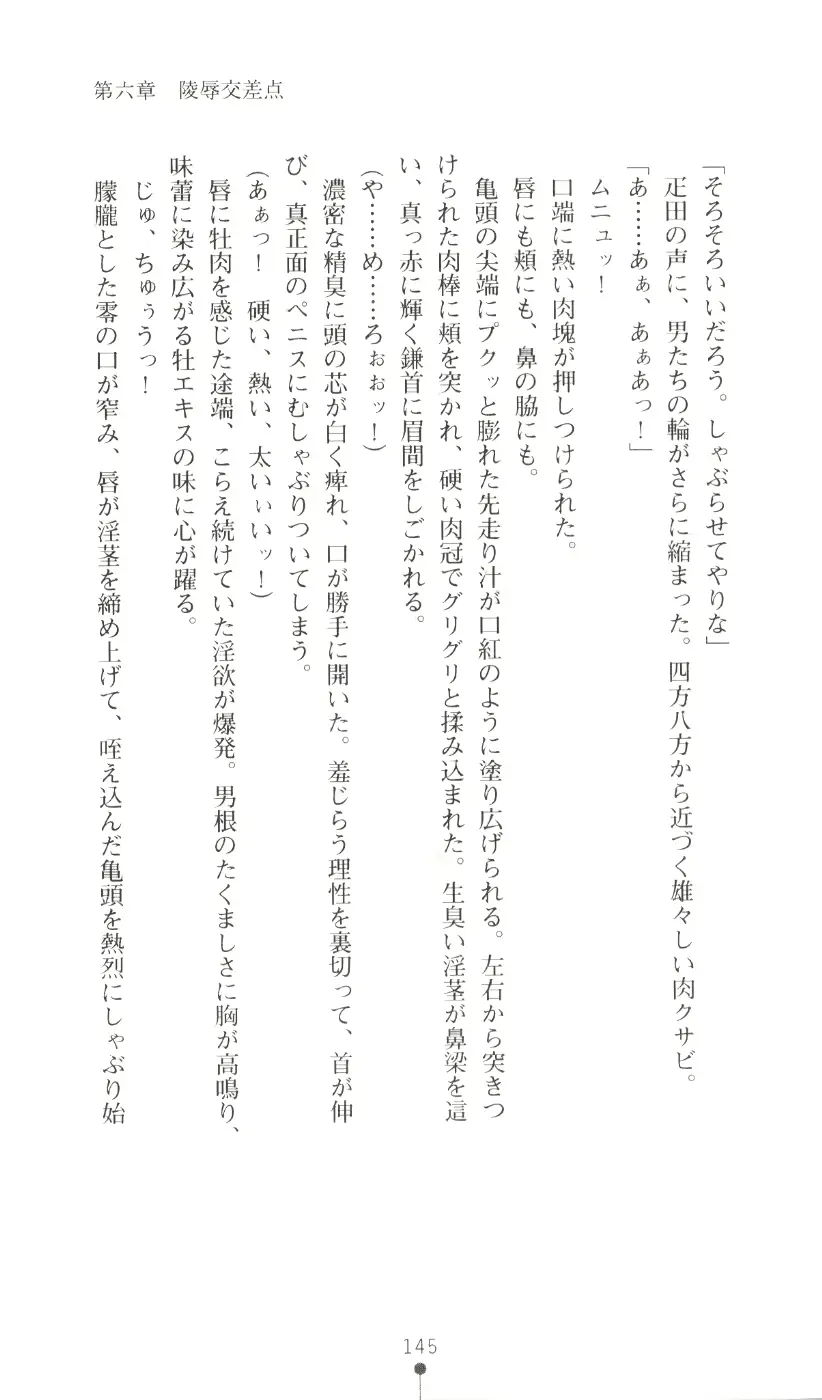 第六章　陵辱交差点
「そろそろいいだろう。しゃぶらせてやりな」
疋田の声に、男たちの輪がさらに縮まった。四方八方から近づく雄々しい肉クサビ。
「あ……あぁ、あぁあっ！」
ムニュッ！
口端に熱い肉塊が押しつけられた。
唇にも頬にも、鼻の脇にも。
亀頭の尖端にプクッと膨れた先走り汁が口紅のように塗り広げられる。左右から突きつ
けられた肉棒に頬を突かれ、硬い肉冠でグリグリと揉み込まれた。生臭い淫茎が鼻梁を這
い、真っ赤に輝く鎌首に眉間をしごかれる。
（や……め……ろぉぉッ！）
濃密な精臭に頭の芯が白く痺れ、口が勝手に開いた。羞じらう理性を裏切って、首が伸
び、真正面のペニスにむしゃぶりついてしまう。
（あぁっ！　硬い、熱い、太いぃいッ！）
唇に牡肉を感じた途端、こらえ続けていた淫欲が爆発。男根のたくましさに胸が高鳴り、
味蕾に染み広がる牡エキスの味に心が躍る。
じゅ、ちゅぅうっ！
朦朧とした零の口が窄み、唇が淫茎を締め上げて、咥え込んだ亀頭を熱烈にしゃぶり始
145